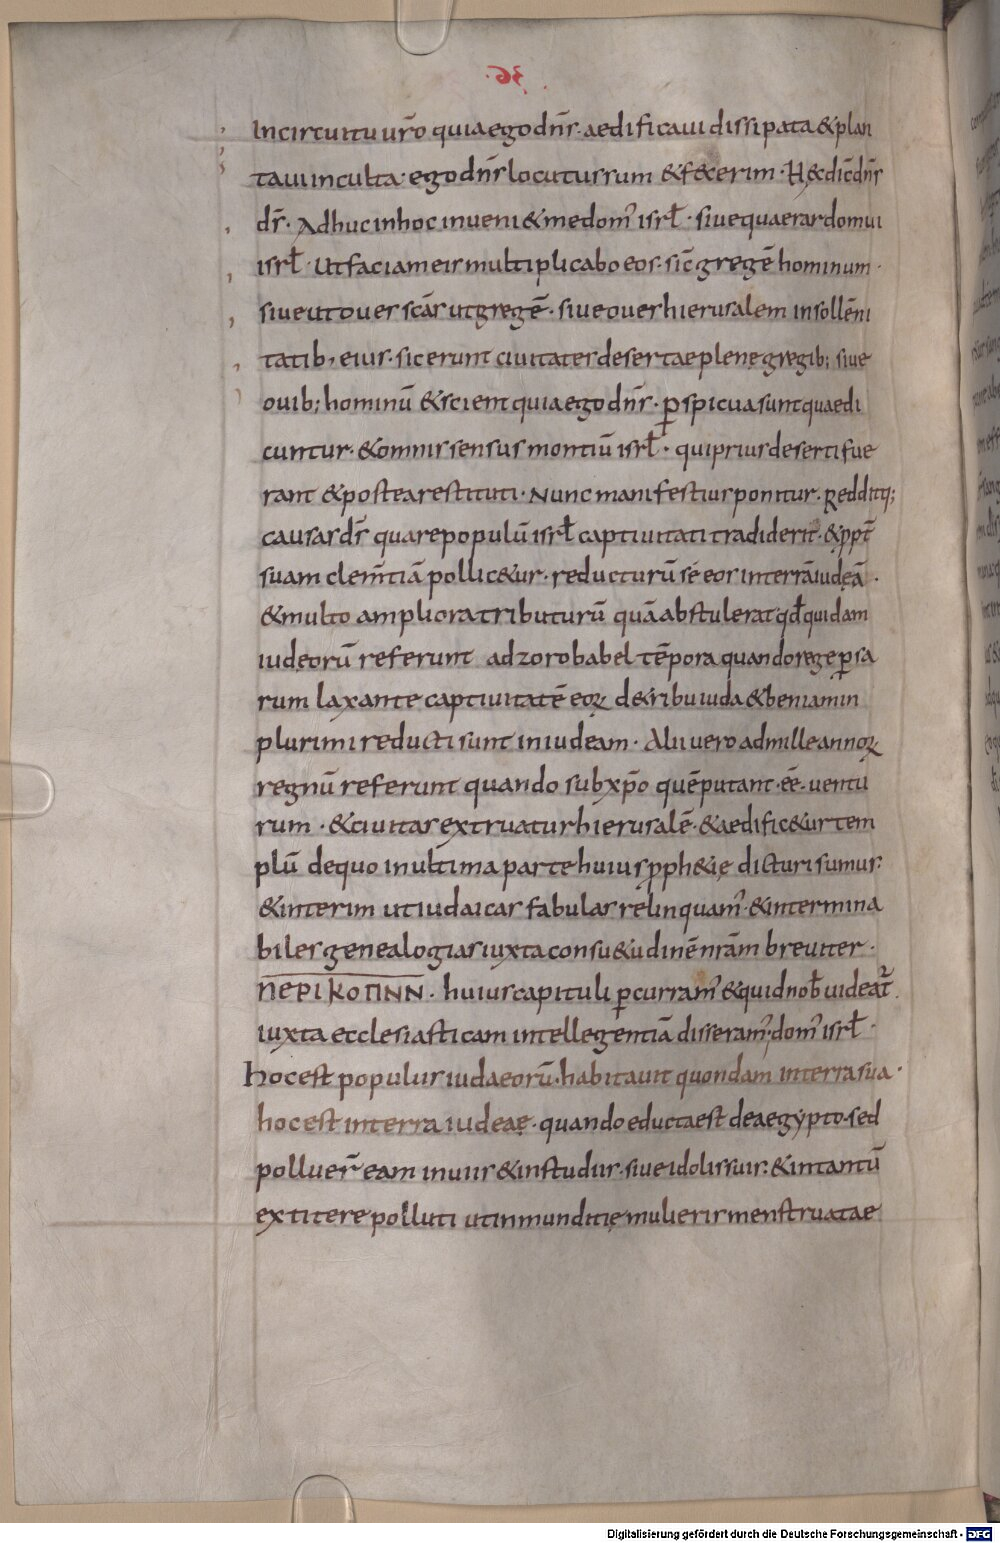 36.
Incircuitu ur̄o quia ego dn̄s· aedificaui dissipata & plan
taui inculta· ego dn̄s locutus sum & fecerim· Hęc dic̄ dn̄s
ds̄· Adhuc in hoc inueni & me dom' isrł· siue quaerar domui
isrł· Ut faciam eis multiplicabo eos· sic̄ gregē hominum·
siue ut oues sc̄as ut gregē· siue oues hierusalem in sollēni
tatib; eius· sic erunt ciuitates desertae plenę gregib; siue
ouib; hominū & scient quia ego dn̄s· ꝑspicua sunt quae di
cuntur· & omnis sensus montiū isrł· qui prius deserti fue
rant & postea restituti· Nunc manifestius ponitur· Redditq;
causas ds̄ quare populū isrł captiuitati tradiderit· & ꝓpt̄
suam clem̄tiā pollic&ur· reducturū se eos in terrā iudęā·
& multo ampliora tributurū quā abstulerat qd̄ quidam
iudeorū referunt ad zorobabel tēpora quando rege ꝑsa
rum laxante captiuitatē eoꝝ de tribu iuda & beniamin
plurimi reducti sunt in iudeam· Alii uero ad mille annoꝝ
regnū referunt quando sub xp̄o quē putant· eē· uentu
rum· & ciuitas extruatur hierusalē· & aedific&ur tēm
plū de quo in ultima parte huius ꝓph&ię dicturi sumus·
& interim ut iudaicas fabulas relinquam'· & intermina
biles genealogias iuxta consu&udinē nr̄am breuiter·
ΠΕΡΙΚΟΠΗΝ· huius capituli ꝑcurram' & quid nob̄ uideat̄
iuxta ecclesiasticam intellegentiā disseram'; dom' isrł·
hoc est populus iudaeorū· habitauit quondam in terra sua·
hoc est in terra iudeaę· quando educta est de aegypto· sed
polluer̄ eam in uiis & in studiis· siue idolis suis· & in tantū
extitere polluti ut inmunditię mulieris menstruatae
Digitalisierung gefördert durch die Deutsche Forschungsgemeinschaft - DFG